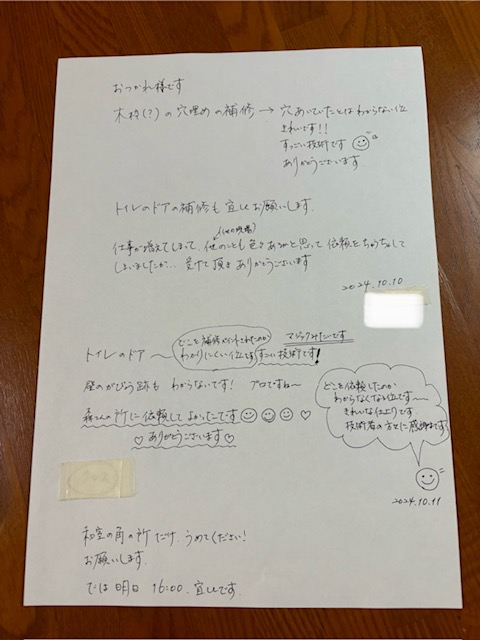 おつかれ様です
木枠(?)の穴埋めの補修 → 穴あいていたとはわからない位
きれいです!!
すっごい技術です
ありがとうございます
トイレのドアの補修も宜しくお願いします。
(他の現場)
仕事が増えてしまって、他のことも色々あるかと思って依頼をちゅうちょして
しまいましたが… 受けて頂きありがとうございます
2024.10.10
トイレのドア〜
どこを補修ペイントされたのか
わかりにくい位です すごい技術です!
マジックみたいです
壁のがびょう跡もわからないです! プロですね〜
森さんの所に依頼してよかったです
♡ありがとうございます♡
どこを依頼したのか
わからなくない位です〜
きれいな仕上りです
技術者の方々に感謝です
2024.10.11
和室の角の所だけ、うめてください!
お願いします。
では明日 16:00. 宜しくです。